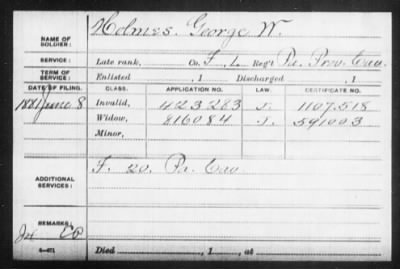 NAME OF SOLDIER: Holmes, George W.
SERVICE: Late rank, Co. F, L Reg't Pa. Prov. Cav.
TERM OF SERVICE: Enlisted , 1 Discharged , 1
DATE OF FILING. CLASS. APPLICATION NO. LAW. CERTIFICATE NO.
1881 June 8 Invalid, 423283 J. 1107518
Widow, 816084 J. 541003
Minor,
ADDITIONAL SERVICES: F. 20. Pa. Cav.
REMARKS:
Died , 1 , at